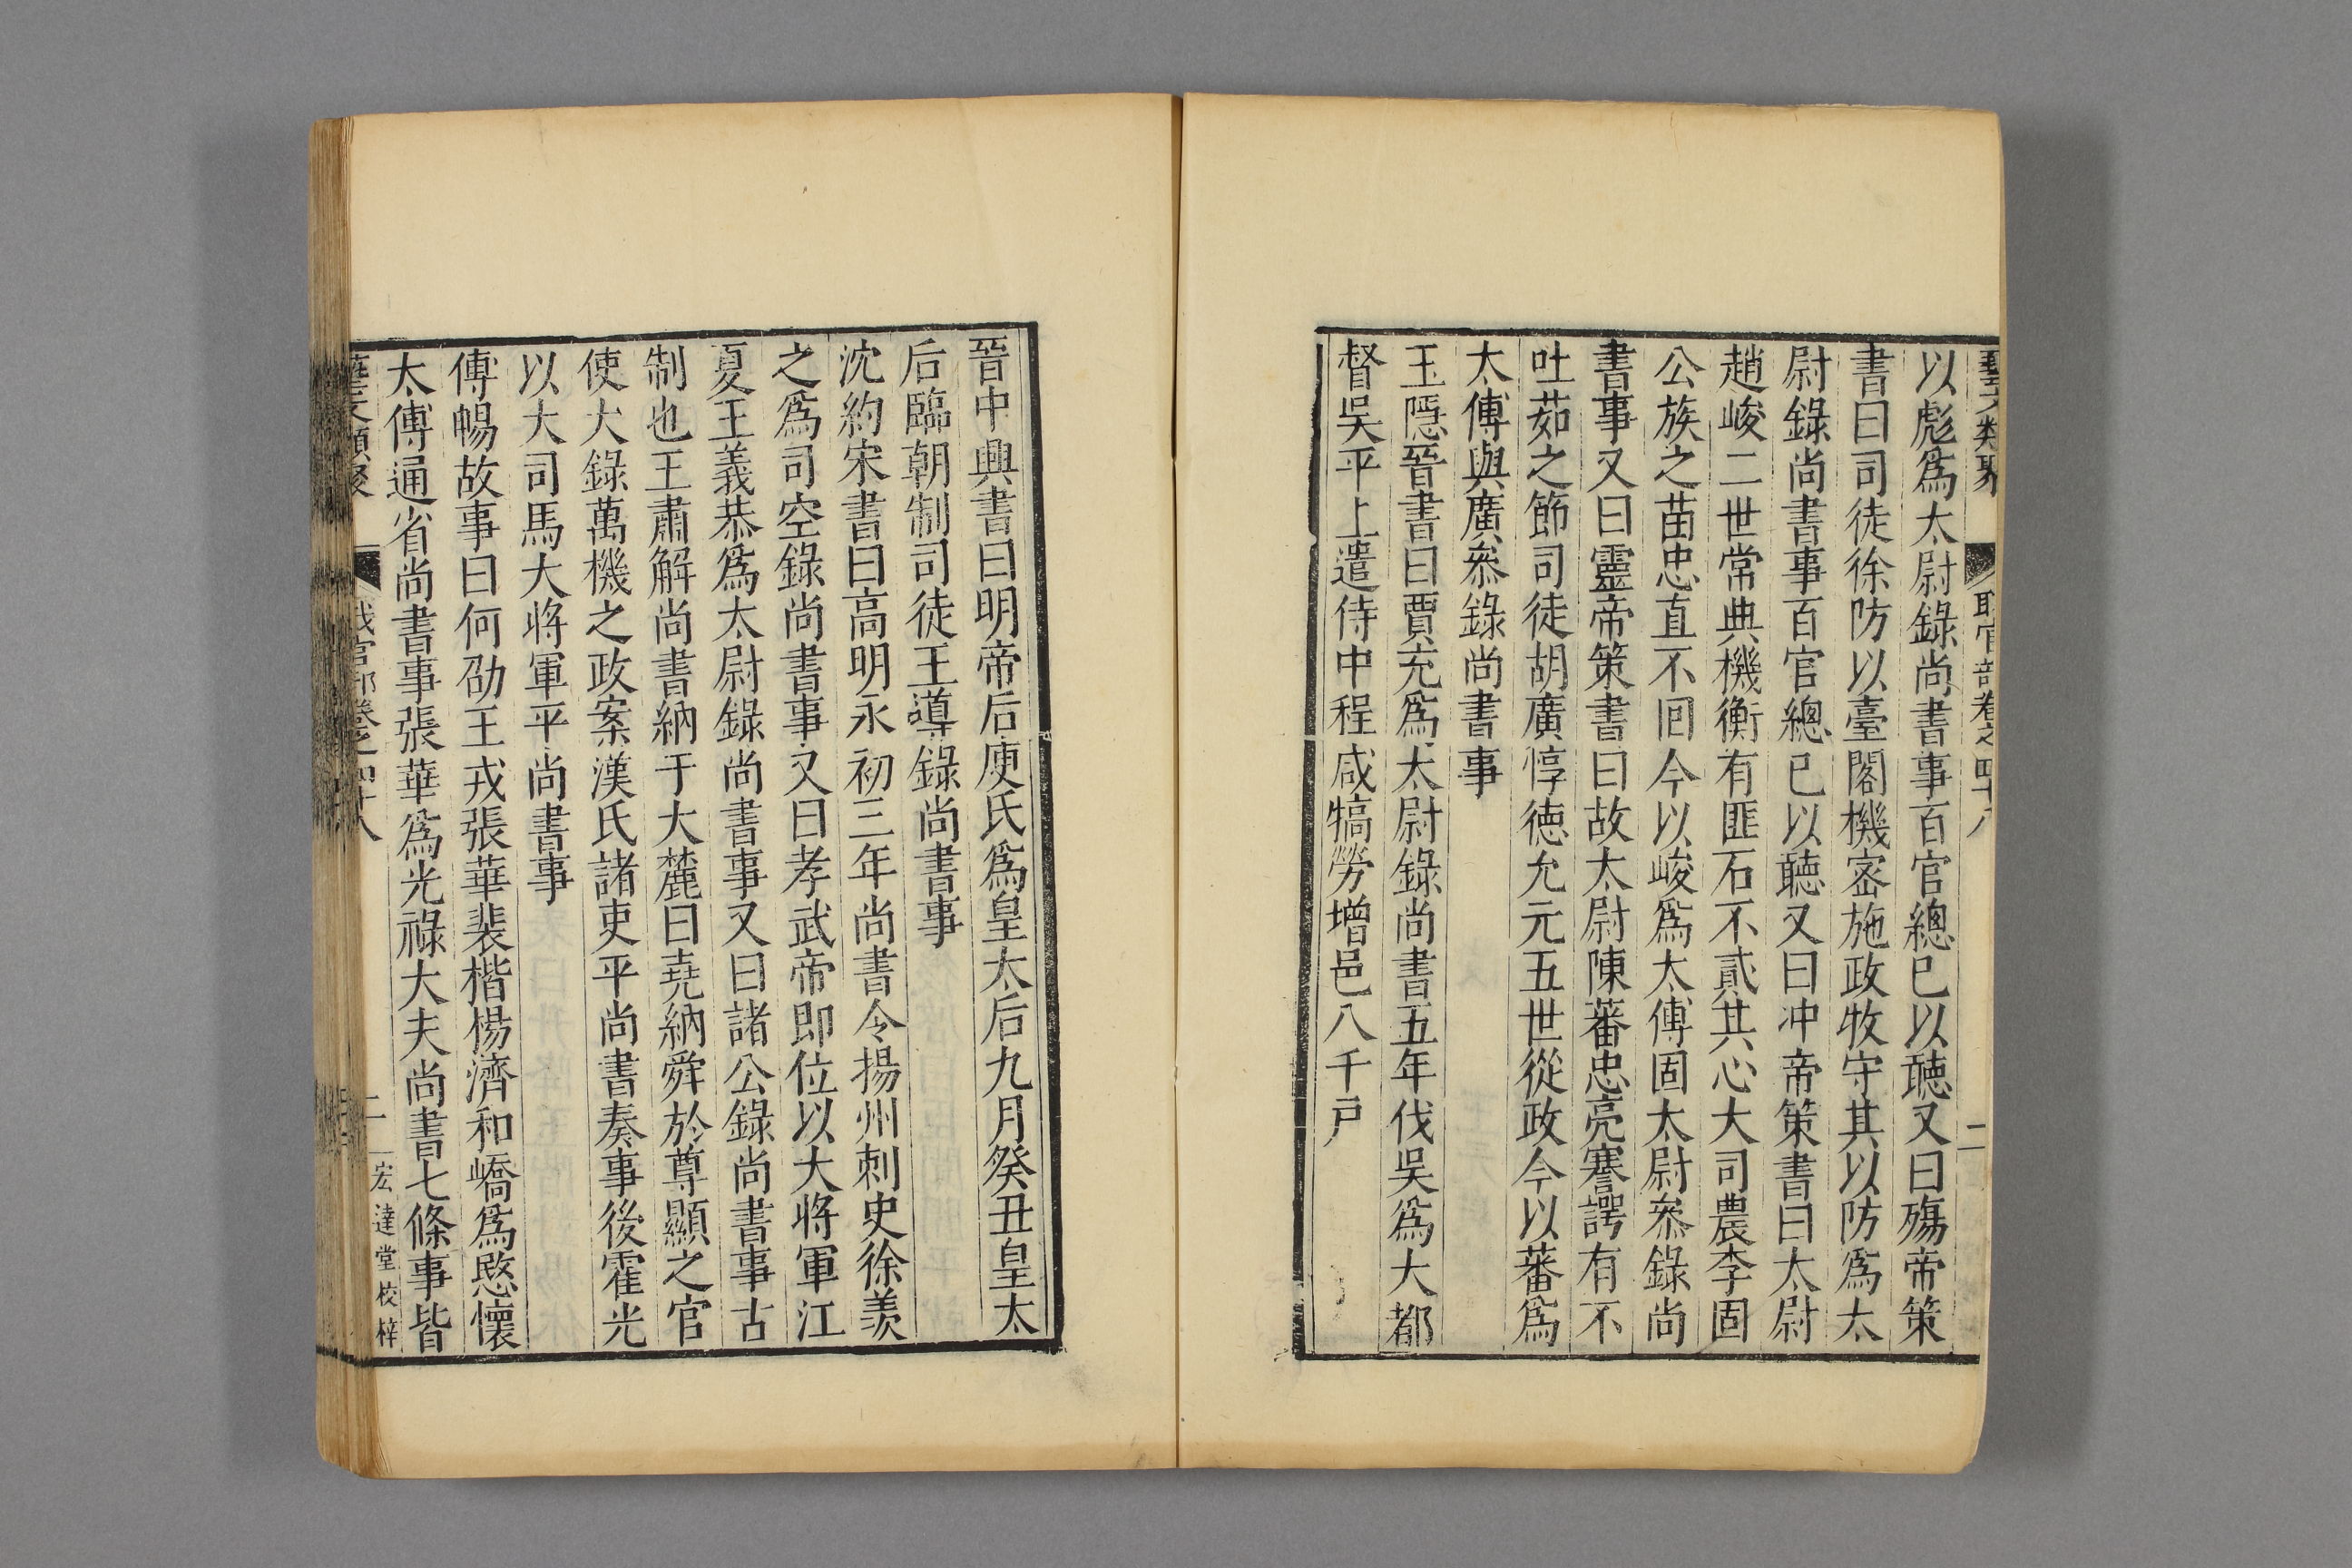 藝文類聚 職官部卷之四十八 二
以彪爲太尉錄尚書事百官總已以聽又曰殤帝策
書曰司徒徐防以臺閣機宻施政牧守其以防爲太
尉錄尚書事百官總已以聽又曰冲帝策書曰太尉
趙峻二世常典機衡有匪石不貳其心大司農李固
公族之苗忠直不囘今以峻爲太傅固太尉叅錄尚
書事又曰靈帝策書曰故太尉陳蕃忠亮謇諤有不
吐茹之節司徒胡廣惇徳允元五世從政今以蕃爲
太傅與廣叅錄尚書事
王隱晉書曰賈充爲太尉錄尚書五年伐吳爲大都
督吳平上遣侍中程咸犒勞增邑八千戸
晉中興書曰明帝后庾氏爲皇太后九月癸丑皇太
后臨朝制司徒王導錄尚書事
沈約宋書曰高明永初三年尚書令揚州刺史徐羨
之爲司空錄尚書事又曰孝武帝即位以大將軍江
夏王義恭爲太尉錄尚書事又曰諸公錄尚書事古
制也王肅解尚書納于大麓曰堯納舜於尊顯之官
使大錄萬機之政案漢氏諸吏平尚書奏事後霍光
以大司馬大將軍平尚書事
傅暢故事曰何劭王戎張華裴楷楊濟和嶠爲愍懷
太傅通省尚書事張華爲光祿大夫尚書七條事皆
藝文類聚 職官部卷之四十八 二 宏達堂校梓